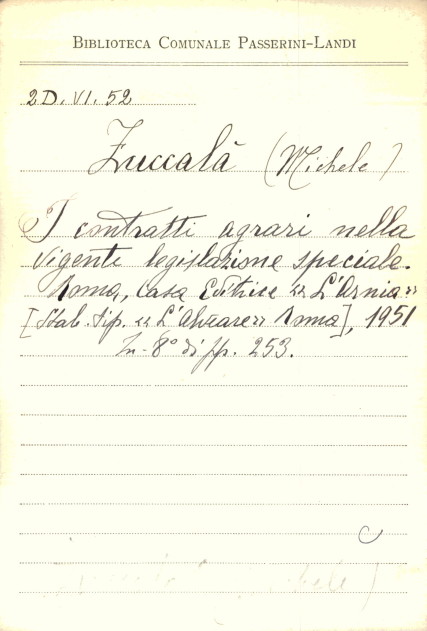 BIBLIOTECA COMUNALE PASSERINI-LANDI
2D.VI.52
Zuccalà (Michele)
I contratti agrari nella
vigente legislazione speciale.
Roma, Casa Editrice «L'Arnia»
[Stab. tip. «L'Alveare» Roma], 1951
In-8° di pp. 253.
C